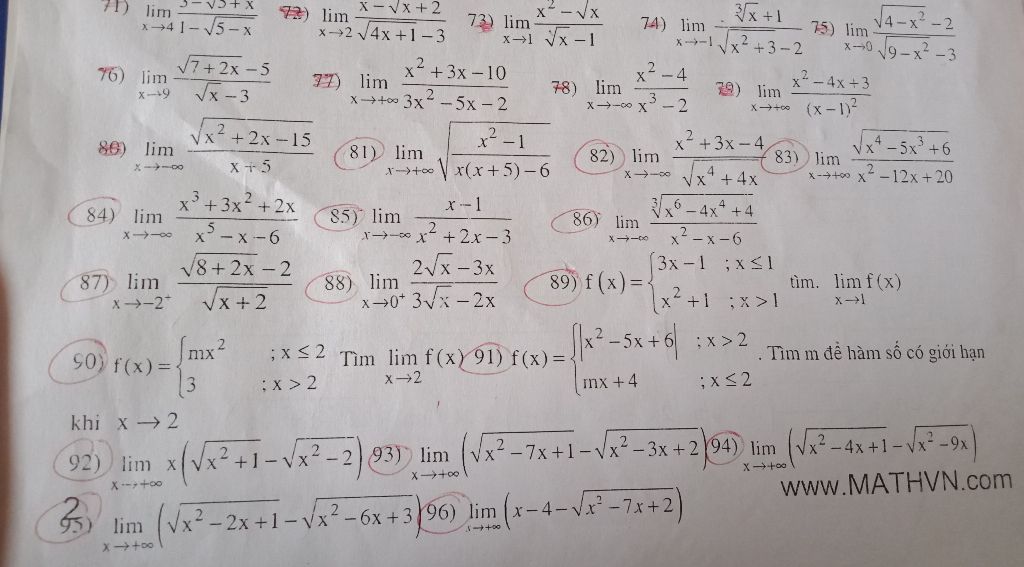 71) lim x→4 (3 − √5 + x)/(1 − √(5 − x)) 72) lim x→2 (x − √(x + 2))/(√(4x + 1) − 3) 73) lim x→1 (x² − √x)/(√x − 1) 74) lim x→−1 (∛x + 1)/(√(x² + 3) − 2) 75) lim x→0 (√(4 − x²) − 2)/(√(9 − x²) − 3)
76) lim x→9 (√(7 + 2x) − 5)/(√x − 3) 77) lim x→+∞ (x² + 3x − 10)/(3x² − 5x − 2) 78) lim x→−∞ (x² − 4)/(x³ − 2) 79) lim x→+∞ (x² − 4x + 3)/(x − 1)²
80) lim x→−∞ √(x² + 2x − 15)/(x + 5) 81) lim x→+∞ √((x² − 1)/(x(x + 5) − 6)) 82) lim x→−∞ (x² + 3x − 4)/√(x⁴ + 4x) 83) lim x→+∞ √(x⁴ − 5x³ + 6)/(x² − 12x + 20)
84) lim x→−∞ (x³ + 3x² + 2x)/(x⁵ − x − 6) 85) lim x→−∞ (x − 1)/(x² + 2x − 3) 86) lim x→−∞ ∛(x⁶ − 4x⁴ + 4)/(x² − x − 6)
87) lim x→−2⁺ (√(8 + 2x) − 2)/√(x + 2) 88) lim x→0⁺ (2√x − 3x)/(3√x − 2x) 89) f(x) = {3x − 1 ; x ≤ 1 x² + 1 ; x > 1 tìm. lim x→1 f(x)
90) f(x) = {mx² ; x ≤ 2 3 ; x > 2 Tìm lim x→2 f(x) 91) f(x) = {|x² − 5x + 6| ; x > 2 mx + 4 ; x ≤ 2 . Tìm m để hàm số có giới hạn
khi x → 2
92) lim x→+∞ x(√(x² + 1) − √(x² − 2)) 93) lim x→+∞ (√(x² − 7x + 1) − √(x² − 3x + 2)) 94) lim x→+∞ (√(x² − 4x + 1) − √(x² − 9x))
www.MATHVN.com
2
95) lim x→+∞ (√(x² − 2x + 1) − √(x² − 6x + 3)) 96) lim x→+∞ (x − 4 − √(x² − 7x + 2))